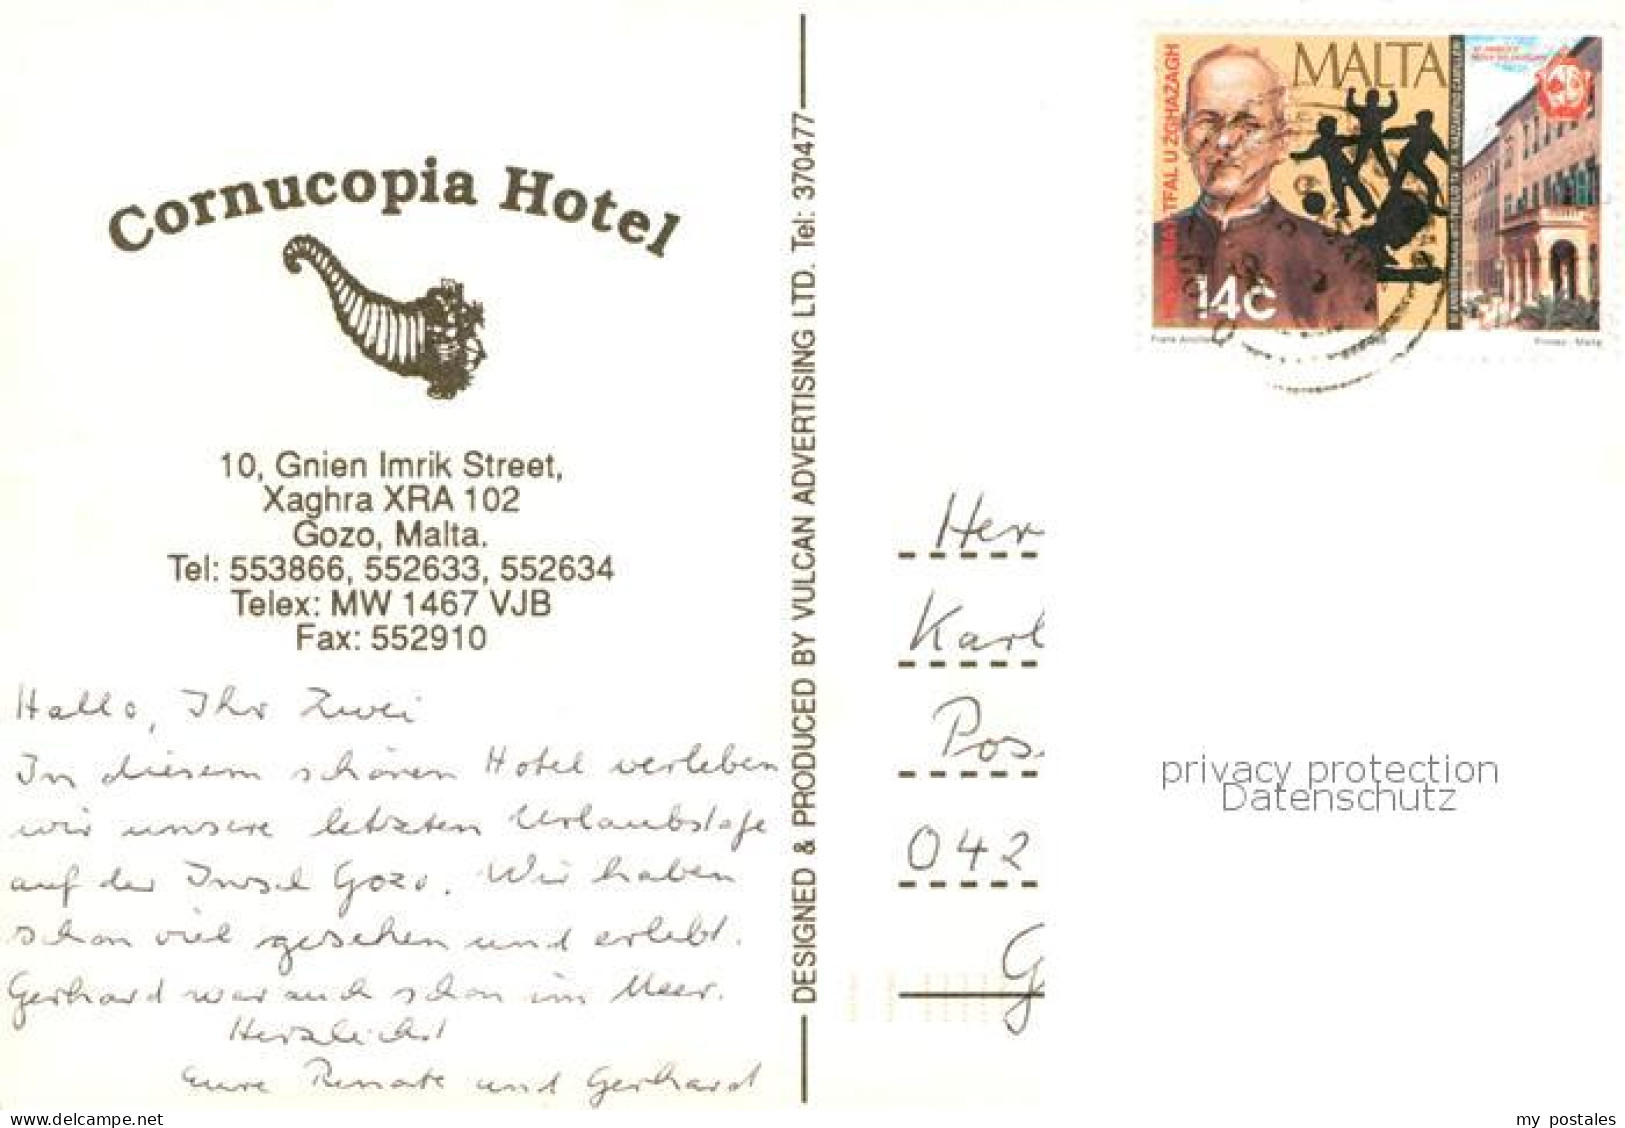 Cornucopia Hotel
10, Gnien Imrik Street,
Xaghra XRA 102
Gozo, Malta.
Tel: 553866, 552633, 552634
Telex: MW 1467 VJB
Fax: 552910
Hallo, Ihr Zwei
In diesem schönen Hotel verleben
wir unsere letzten Urlaubstage
auf der Insel Gozo. Wir haben
schon viel gesehen und erlebt.
Gerhard war auch schon im Meer.
Herzlichst
Eure Renate und Gerhard
DESIGNED & PRODUCED BY VULCAN ADVERTISING LTD. Tel: 370477
MALTA
TFAL U ŻGĦAŻAGĦ
14c
Her
Karl
Pos
042
G
privacy protection
Datenschutz
delcampe.net
my_postales